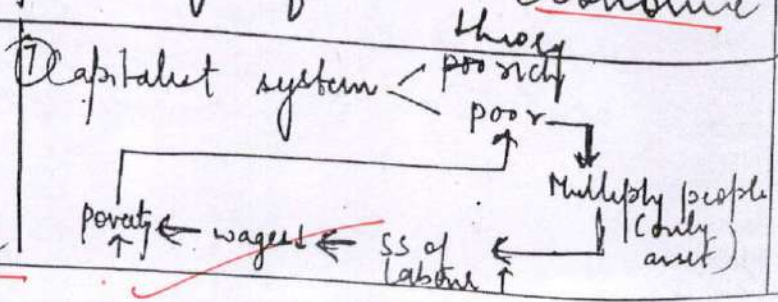 economic
theory
⑦ Capitalist system
rich
poor
Multiply people
(only
asset)
poverty ↑ ← wages ↓ ← SS of
labour ↑